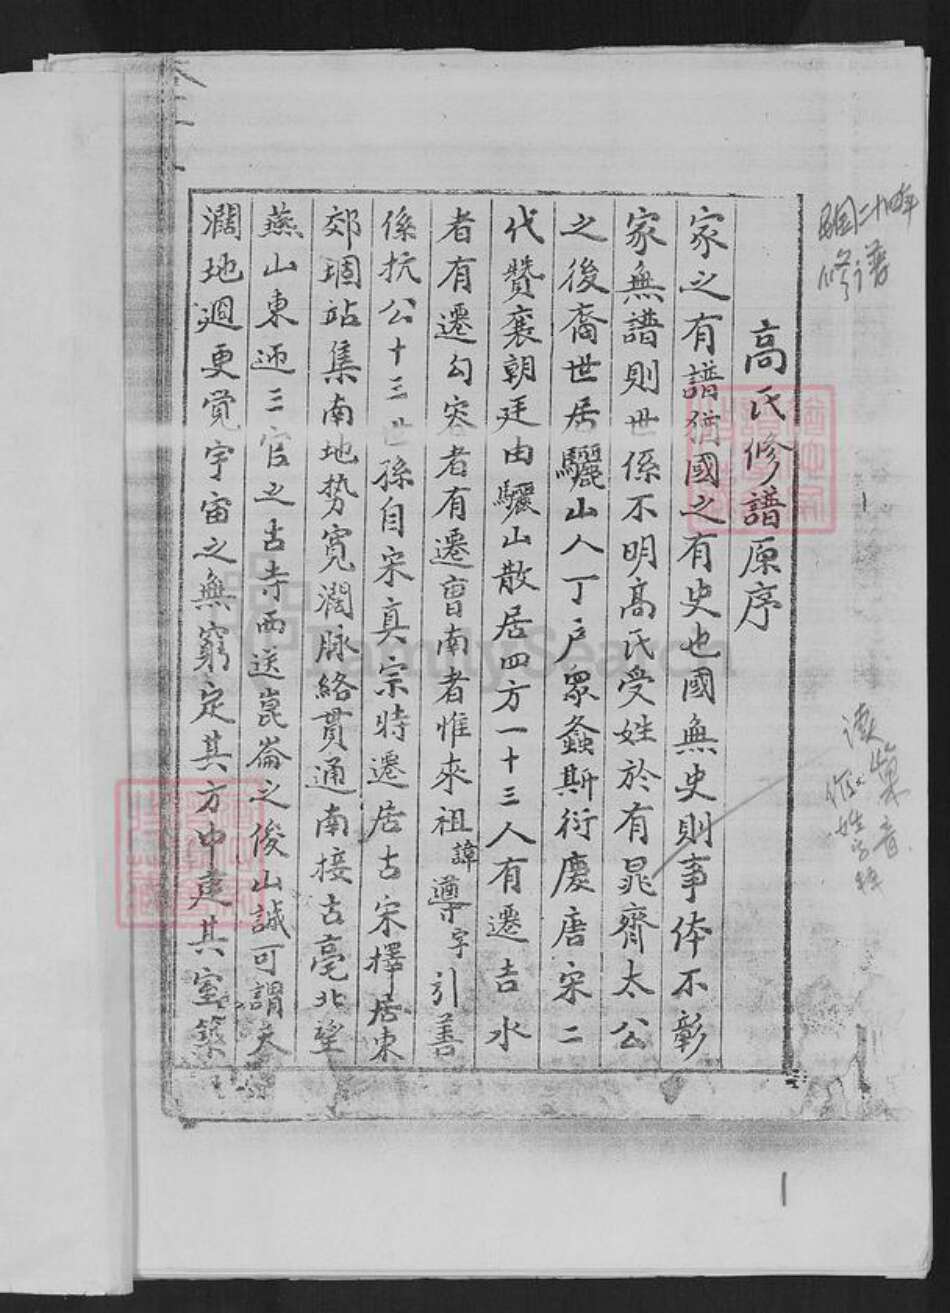 民國二十四年
修譜
高氏修譜原序
家之有譜猶國之有史也國無史則事体不彰
家無譜則世係不明高氏受姓於有晁齊太公
之後裔世居驪山人丁戶眾螽斯衍慶唐宋二
代贊襄朝廷由驪山散居四方一十三人有遷吉水
者有遷勾容者有遷曹南者惟來祖諱遵字引善
係抗公十三世孫自宋真宗特遷居古宋擇居東
郊堌站集南地势寬濶脉絡貫通南接古亳北望
燕山東迊三官之古寺西送崑崙之俊山誠可謂天
濶地廻更覺宇宙之無窮定其方中建其室築
1
FamilySearch